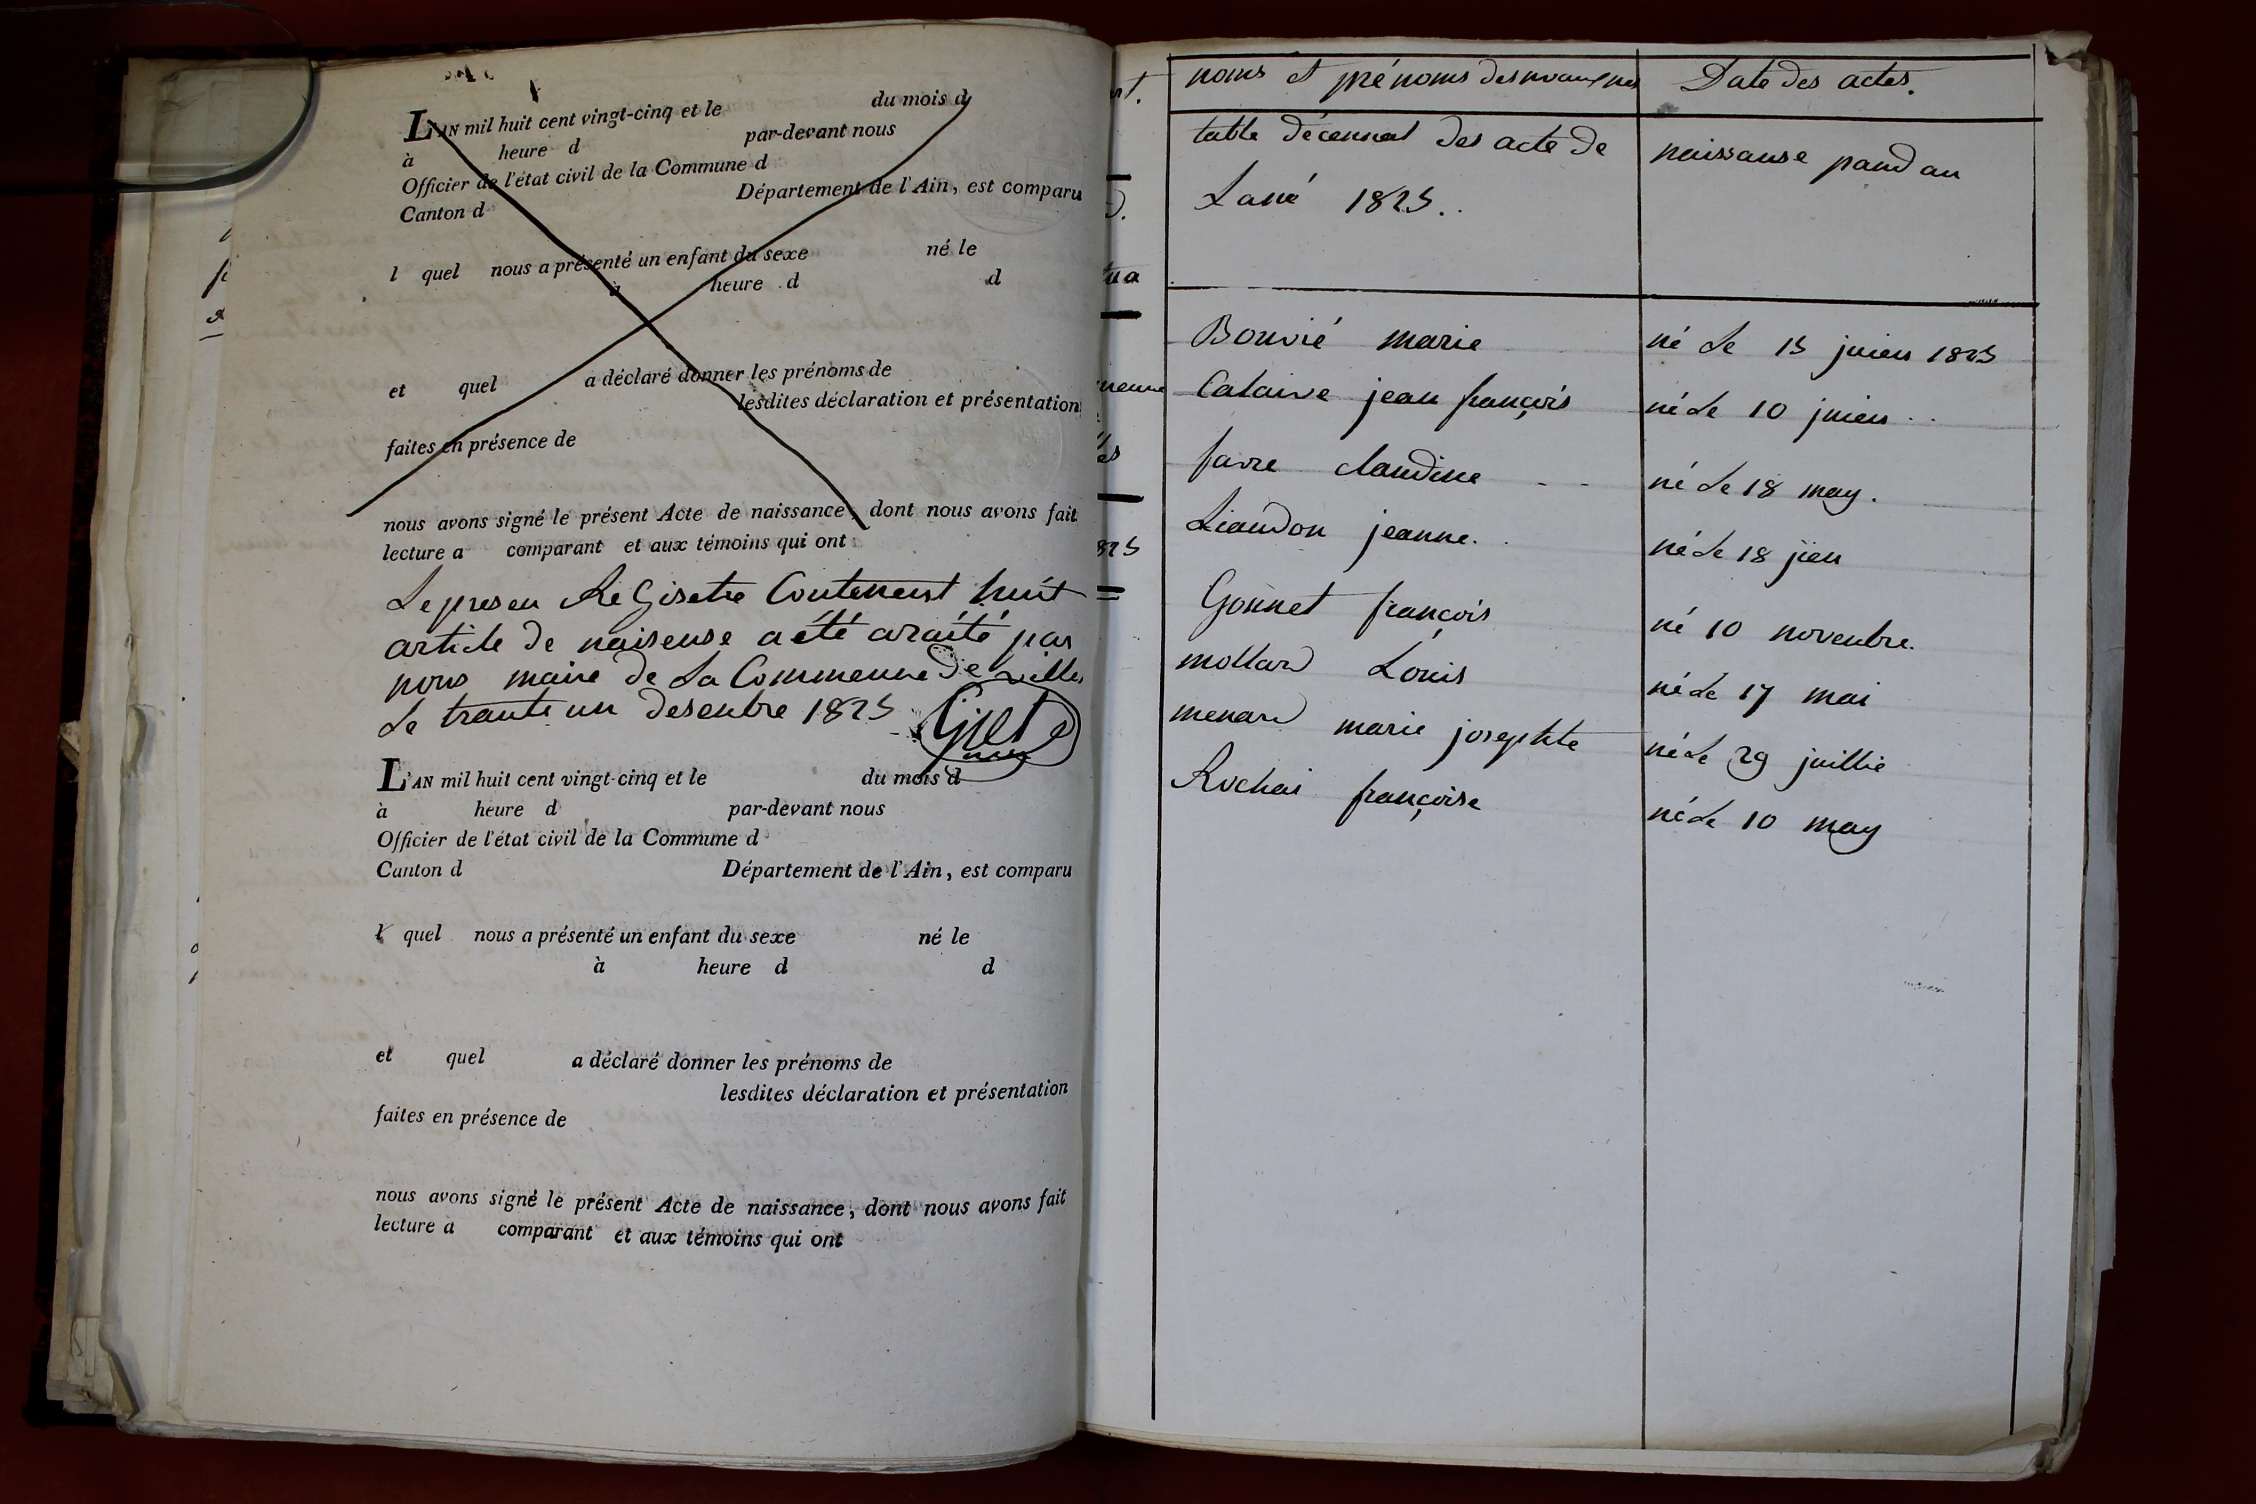 L'AN mil huit cent vingt-cinq et le du mois d
à heure d par-devant nous
Officier de l'état civil de la Commune d
Canton d Département de l'Ain, est comparu
l quel nous a présenté un enfant du sexe né le
à heure d d
et quel a déclaré donner les prénoms de
lesdites déclaration et présentation
faites en présence de
nous avons signé le présent Acte de naissance, dont nous avons fait
lecture a comparant et aux témoins qui ont
Le presen ReGisetre Contenent huit
article de naisense a été araité par
nous maire de La Commenne de villes
Le trante un desenbre 1825
L'AN mil huit cent vingt-cinq et le du mois d
à heure d par-devant nous
Officier de l'état civil de la Commune d
Canton d Département de l'Ain, est comparu
l quel nous a présenté un enfant du sexe né le
à heure d d
et quel a déclaré donner les prénoms de
lesdites déclaration et présentation
faites en présence de
nous avons signé le présent Acte de naissance, dont nous avons fait
lecture a comparant et aux témoins qui ont
noms et prénoms des nouvaux nes Date des actes.
table décennal des acte de naissanse pandan
Lané 1825..
Bouvié marie né Le 15 juien 1825
Cataive jean françois né Le 10 juien ..
favre claudine né Le 18 may.
Liaudon jeanne. né Le 18 jien
Gonnet françois né 10 novenbre.
mollard Louis né Le 17 mai
menard marie josephte né Le 29 juillié
Rochai françoise né Le 10 may